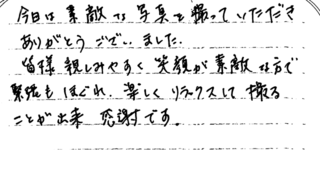 今日は素敵な写真を撮っていただき
ありがとうございました。
皆様親しみやすく笑顔が素敵な方で
緊張もほぐれ、楽しくリラックスして撮る
ことが出来感謝です。